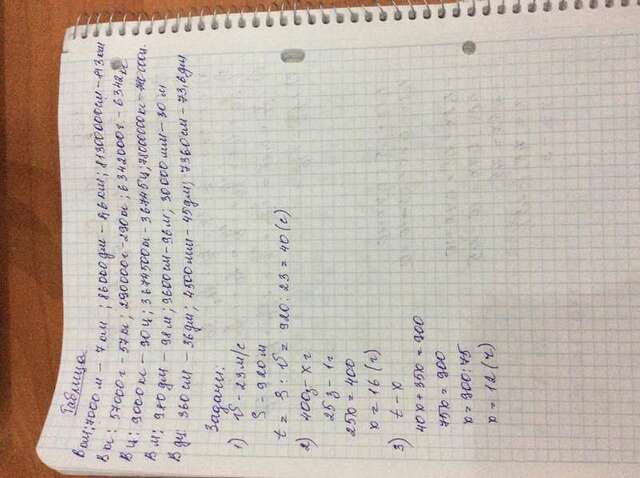 Таблица
В км; 7000 м – 7 км ; 86000 дм – 8,6 км; 81300000 см – 813 км
В кг: 57000 г – 57 кг; 290000 г – 290 кг; 6342000 г – 6342 кг
В ц: 9000 кг – 90 ц; 3674500 кг – 36745 ц; 78000000 кг –
В м; 980 дм – 98 м; 9600 см – 96 м; 30000 мм – 30 м
В дм 360 см – 36 дм; 4500 мм – 45 дм; 7360 см – 73,6 дм
Задачи:
1) V – 23 м/с
S – 920 м
t = S : V = 920 : 23 = 40 (с)
2) 400 – x г
25 – 1 г
25x = 400
x = 16 (г)
3) t – x
40x + 35x = 900
75x = 900
x = 900 : 75
x = 12 (ч)